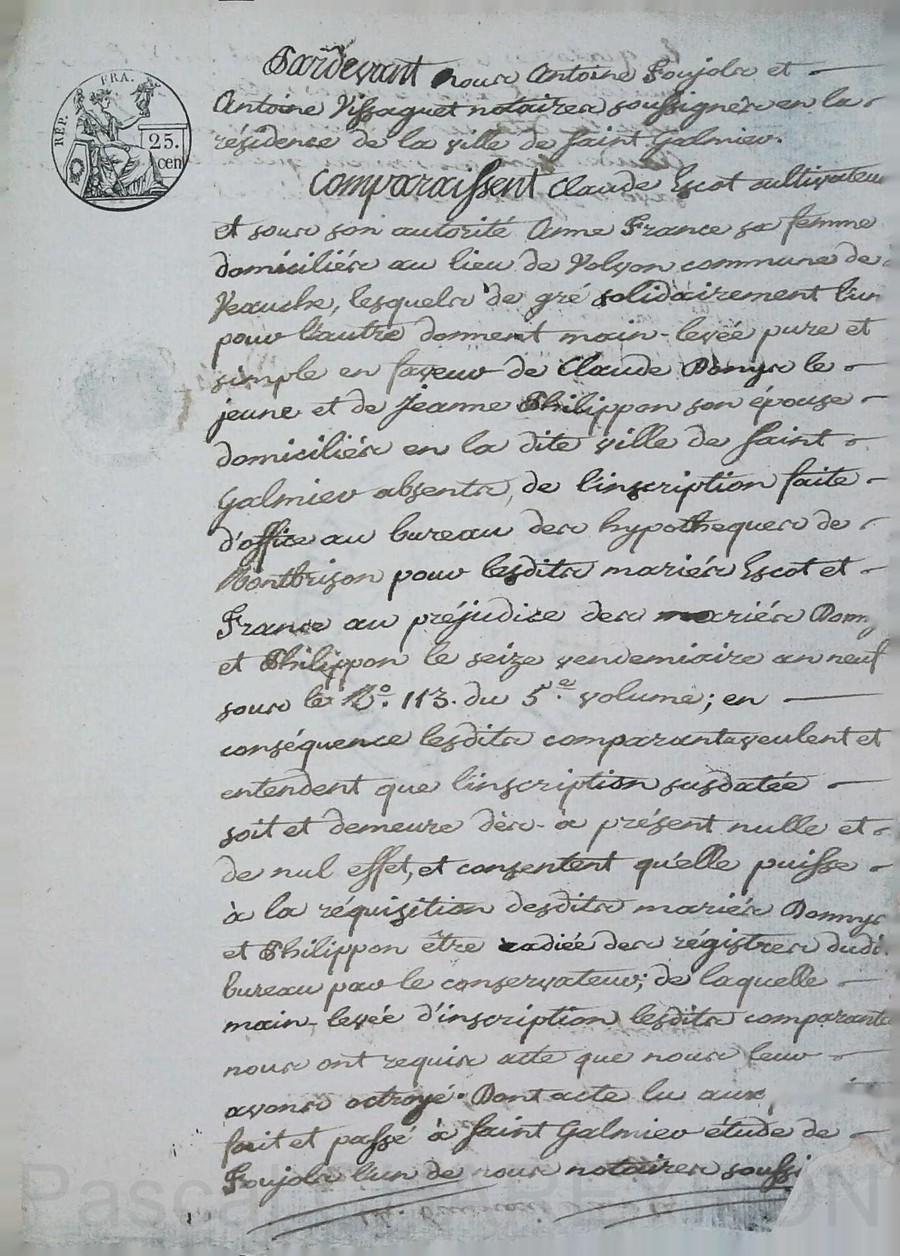 RÉP. FRA.
25.
cen
Pardevant nous Antoine Poujols et
Antoine Vissaguet notaires soussignés en la
résidence de la ville de Saint Galmier.
Comparaissent Claude Escot cultivateur
et sous son autorité Anne France sa femme
domiciliés au lieu de Volvon commune de
Veauche, lesquels de gré solidairement l'un
pour l'autre donnent main-levée pure et
simple en faveur de Claude le
jeune et de Jeanne Philippon son épouse
domiciliés en la dite ville de Saint
Galmier absents, de l'inscription faite
d'office au bureau des hypotheques de
Montbrison pour lesdits mariés Escot et
France au préjudice des mariés
et Philippon le seize vendemiaire an neuf
sous le N.o 113. du 5.e volume; en
conséquence lesdits comparants veulent et
entendent que l'inscription susdatée
soit et demeure dès-à présent nulle et
de nul effet, et consentent qu'elle puisse
à la réquisition desdits mariés
et Philippon être radiée des régistres dudi.
bureau par le conservateur; de laquelle
main-levée d'inscription lesdits comparants
nous ont requis acte que nous leur
avons octroyé. Dont acte lu aux
fait et passé à Saint Galmier étude de
Poujols l'un de nous notaires soussi
Pascal